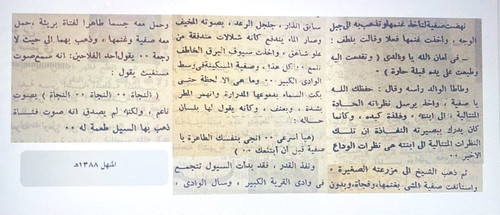 نهضت صفية لتأخذ غنمها وتذهب به الى جبل
الوجه ، وأخذت غنمها فعلا وقالت بلطف :
ـ في أمان الله يا والدي ( ونهضت اليه
وطبعت على يده قبلة حارة ) .
وطأطأ الوالد رأسه وقال : حفظك الله
يا صفية ، وأخذ يرسل نظراته الحادة
المتتالية ، الى ابنته ، وفلذة كبده ، وكأنما
كان يدرك ببصيرته النفاذة ان تلك
النظرات المتتالية الى ابنته هي نظرات الوداع
الأخير ٠٠
ثم ذهب الشيخ الى مزرعته الصغيرة ٠
واستأنفت صفية المشي بغنمها ، وفجأة ، وبدون
سابق انذار ، جلجل الرعد ، بصوته المخيف
وصار الماء يندفع كأنه شلالات متدفقة من
علو شاهق ، وأخذت سيوف البرق الخاطف
تلمع ٠٠ كل هذا ، وصفية المسكينة في وسط
الوادي الكبير ٠٠ وما هي الا لحظة حتى
بكت السماء بدموعها المدرارة وانهمر المطر
بشدة ، وبعنف ، وكأنه يقول لها بلسان
حاله :
( هيا أسرعي ٠٠ انجي بنفسك الطاهرة يا
صفية قبل أن أبتلعك ٠٠ )
ونفذ القدر ، فقد بدأت السيول تتجمع
في وادي القرية الكبير ، وسال الوادي ،
وحمل معه جسما طاهرا لفتاة بريئة ، حمل
معه صفية وغنمها ، وذهب بهما الى حيث لا
رجعة ٠٠ يقول أحد الفلاحين : انه سمع صوت
مستغيث يقول :
( النجاة ٠٠ النجاة ٠٠ النجاة ) بصوت
ناعم ، ولكنه لم يصدق انه صوت فتاة
ذهب بها السيل طعمة له ٠٠
المنهل ١٣٨٨هـ